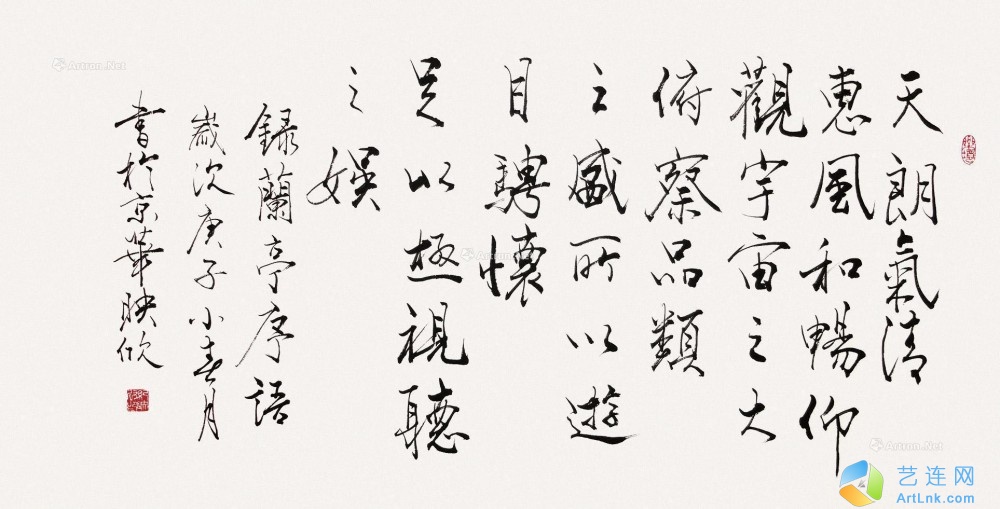 天朗氣清
惠風和暢仰
觀宇宙之大
俯察品類
之盛所以遊
目騁懷
足以極視聽
之娛
録蘭亭序語
歲次庚子小春月
書於京華映欣
Artron.Net
Artron.Net
艺连网
ArtLnk.com